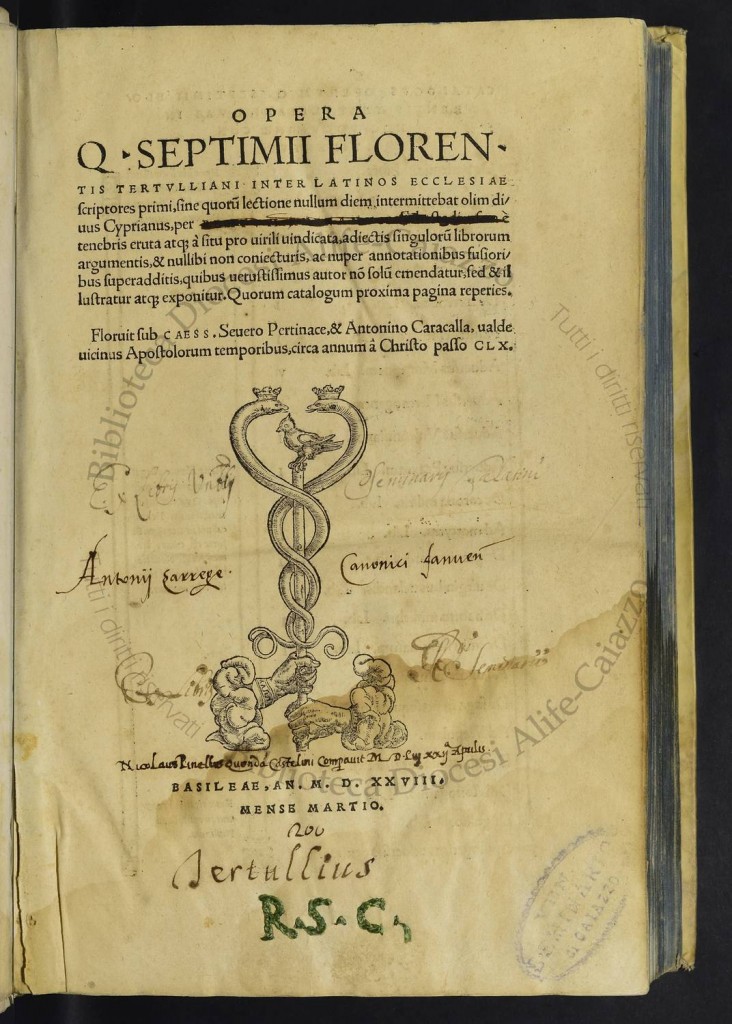 OPERA
Q▸SEPTIMII FLOREN▸
TIS TERTVLLIANI INTER LATINOS ECCLESIAE
scriptores primi, sine quorũ lectione nullum diem intermittebat olim di/
uus Cyprianus, per
tenebris eruta atq; à situ pro uirili uindicata, adiectis singulorũ librorum
argumentis, & nullibi non coniecturis, ac nuper annotationibus fusiori/
bus superadditis, quibus uetustissimus autor nõ solũ emendatur, sed & il
lustratur atq; exponitur. Quorum catalogum proxima pagina reperies.
Floruit sub CAESS. Seuero Pertinace, & Antonino Caracalla, ualde
uicinus Apostolorum temporibus, circa annum â Christo passo CLX.
Antonij Carrege.
Canonici Januen
Nicolaus Pinellus Compauit
BASILEAE, AN. M. D. XXVIII.
MENSE MARTIO.
200
Tertullius
R.S.C.
Biblioteca Diocesi Alife-Caiazzo
Tutti i diritti riservati
Tutti i diritti riservati
Biblioteca Diocesi Alife-Caiazzo